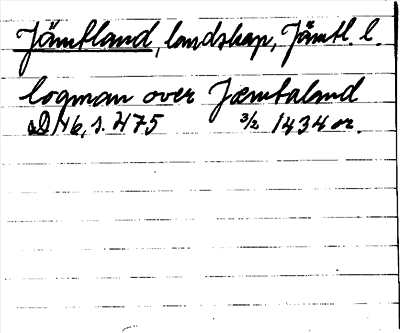 Jämtland, landskap, Jämtl. l.
logman over Jæmtaland
SD N6, s. 475 3/2 1434 or.